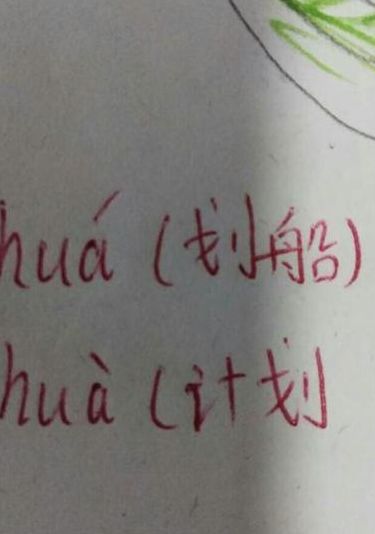 huá (划船)
huà (计划